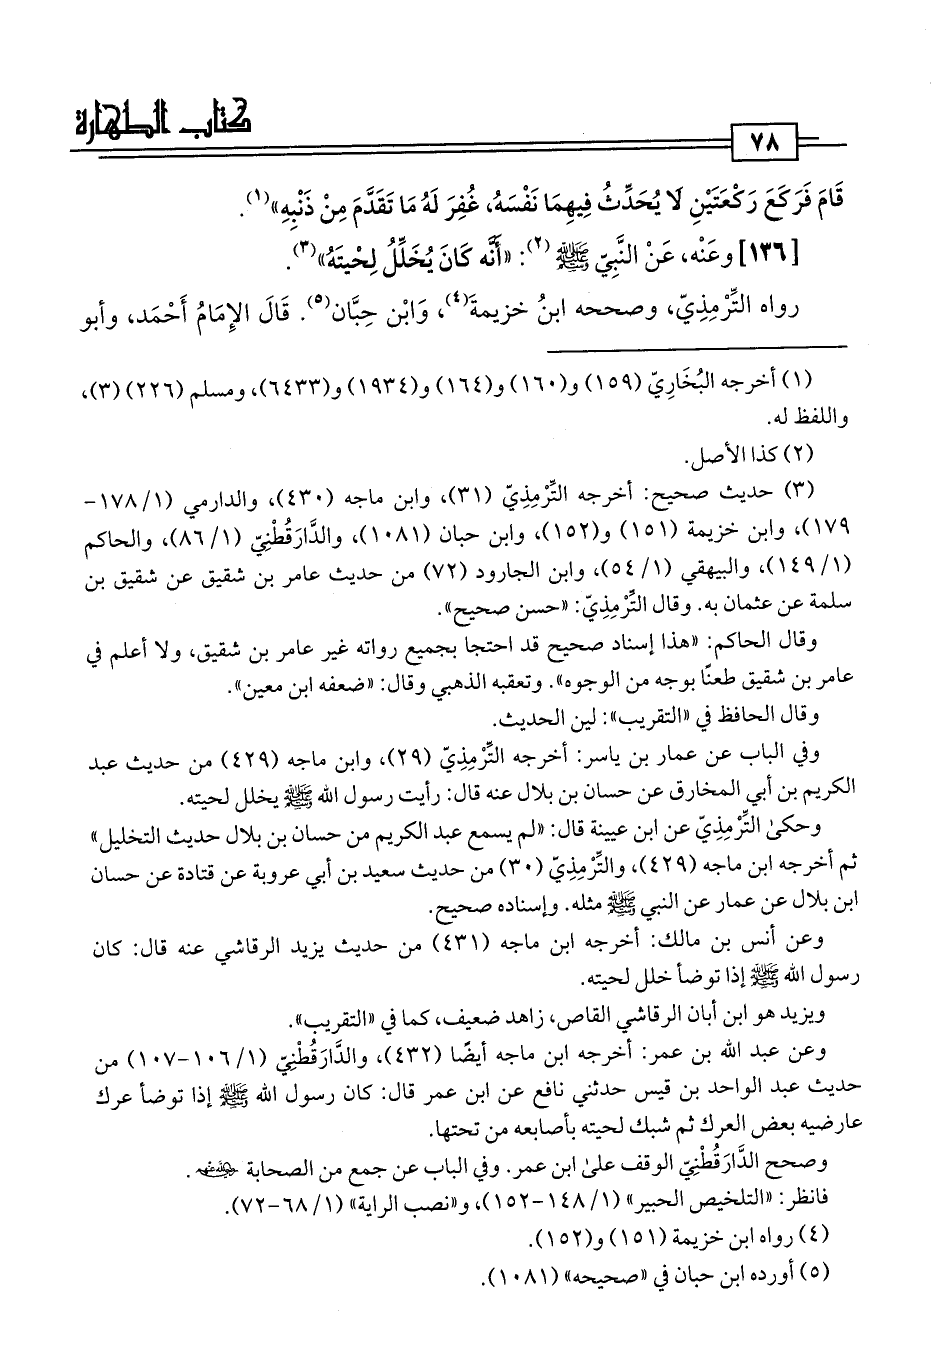 كتاب الطهارة
٧٨
قَامَ فَرَكَعَ رَكْعَتَيْنِ لَا يُحَدِّثُ فِيهِمَا نَفْسَهُ، غُفِرَ لَهُ مَا تَقَدَّمَ مِنْ ذَنْبِهِ»(١).
[١٣٦] وعَنْه، عَنْ النَّبِيّ ﷺ(٢): «أَنَّه كَانَ يُخَلِّلُ لِحْيتَهُ»(٣).
رواه التِّرْمِذِيّ، وصححه ابنُ خزيمةَ(٤)، وَابْن حِبَّان(٥). قَالَ الإِمَامُ أَحْمَد، وأبو
(١) أخرجه البُخَارِيّ (١٥٩) و(١٦٠) و(١٦٤) و(١٩٣٤) و(٦٤٣٣)، ومسلم (٢٢٦) (٣)،
واللفظ له.
(٢) كذا الأصل.
(٣) حديث صحيح: أخرجه التِّرْمِذِيّ (٣١)، وابن ماجه (٤٣٠)، والدارمي (١/ ١٧٨-
١٧٩)، وابن خزيمة (١٥١) و(١٥٢)، وابن حبان (١٠٨١)، والدَّارَقُطْنِيّ (١/ ٨٦)، والحاكم
(١/ ١٤٩)، والبيهقي (١/ ٥٤)، وابن الجارود (٧٢) من حديث عامر بن شقيق عن شقيق بن
سلمة عن عثمان به. وقال التِّرْمِذِيّ: «حسن صحيح».
وقال الحاكم: «هذا إسناد صحيح قد احتجا بجميع رواته غير عامر بن شقيق، ولا أعلم في
عامر بن شقيق طعنًا بوجه من الوجوه». وتعقبه الذهبي وقال: «ضعفه ابن معين».
وقال الحافظ في «التقريب»: لين الحديث.
وفي الباب عن عمار بن ياسر: أخرجه التِّرْمِذِيّ (٢٩)، وابن ماجه (٤٢٩) من حديث عبد
الكريم بن أبي المخارق عن حسان بن بلال عنه قال: رأيت رسول الله ﷺ يخلل لحيته.
وحكىٰ التِّرْمِذِيّ عن ابن عيينة قال: «لم يسمع عبد الكريم من حسان بن بلال حديث التخليل»
ثم أخرجه ابن ماجه (٤٢٩)، والتِّرْمِذِيّ (٣٠) من حديث سعيد بن أبي عروبة عن قتادة عن حسان
ابن بلال عن عمار عن النبي ﷺ مثله. وإسناده صحيح.
وعن أنس بن مالك: أخرجه ابن ماجه (٤٣١) من حديث يزيد الرقاشي عنه قال: كان
رسول الله ﷺ إذا توضأ خلل لحيته.
ويزيد هو ابن أبان الرقاشي القاص، زاهد ضعيف، كما في «التقريب».
وعن عبد الله بن عمر: أخرجه ابن ماجه أيضًا (٤٣٢)، والدَّارَقُطْنِيّ (١/ ١٠٦-١٠٧) من
حديث عبد الواحد بن قيس حدثني نافع عن ابن عمر قال: كان رسول الله ﷺ إذا توضأ عرك
عارضيه بعض العرك ثم شبك لحيته بأصابعه من تحتها.
وصحح الدَّارَقُطْنِيّ الوقف علىٰ ابن عمر. وفي الباب عن جمع من الصحابة رضي الله عنهم.
فانظر: «التلخيص الحبير» (١/ ١٤٨-١٥٢)، و«نصب الراية» (١/ ٦٨-٧٢).
(٤) رواه ابن خزيمة (١٥١) و(١٥٢).
(٥) أورده ابن حبان في «صحيحه» (١٠٨١).